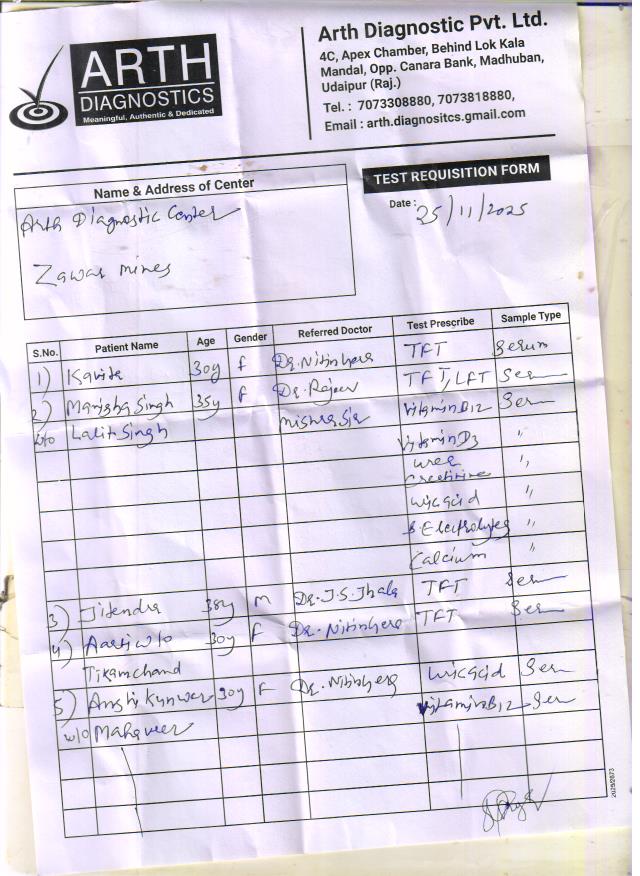 ARTH
DIAGNOSTICS
Meaningful, Authentic & Dedicated
Arth Diagnostic Pvt. Ltd.
4C, Apex Chamber, Behind Lok Kala
Mandal, Opp. Canara Bank, Madhuban,
Udaipur (Raj.)
Tel. : 7073308880, 7073818880,
Email : arth.diagnositcs.gmail.com
TEST REQUISITION FORM
Name & Address of Center
Date : 25/11/2025
Arth Diagnostic Center
Zawar mines
S.No. Patient Name Age Gender Referred Doctor Test Prescribe Sample Type
1) Kavita 30y f Dr. Nitin TFT Serum
2) Manisha Singh 35y f Dr. Rajeev TFT, LFT Ser
w/o Lalit Singh Mishra Sir Vitamin B12 Ser
Vitamin D3 "
urea "
Creatinine
Uric acid "
S. Electrolytes "
Calcium "
3) Jitendra 38y M Dr. J.S. Jhala TFT Ser
4) Aarti w/o 30y F Dr. Nitin TFT Ser
Tikamchand
5) Kunwar 30y F Dr. Nitin Uric acid Ser
w/o Mahaveer Vitamin B12 Ser
2025/2673